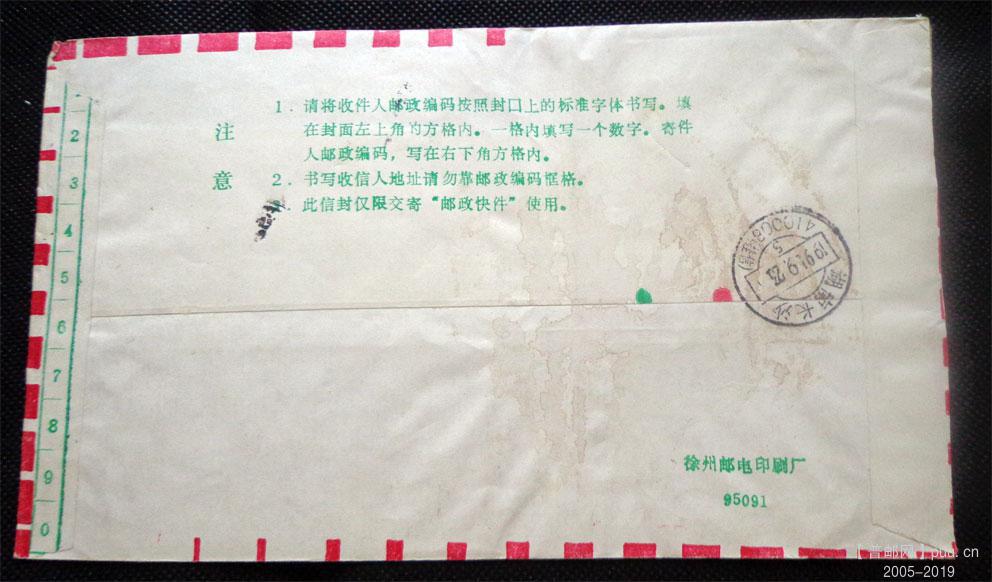 注意
1. 请将收件人邮政编码按照封口上的标准字体书写。填
在封面左上角的方格内。一格内填写一个数字。寄件
人邮政编码，写在右下角方格内。
2. 书写收信人地址请勿靠邮政编码框格。
此信封仅限交寄“邮政快件”使用。
2
3
4
5
6
7
8
9
0
湖南长沙
410008
5
徐州邮电印刷厂
95091
[普邮网] pu
.cn
2005-2019